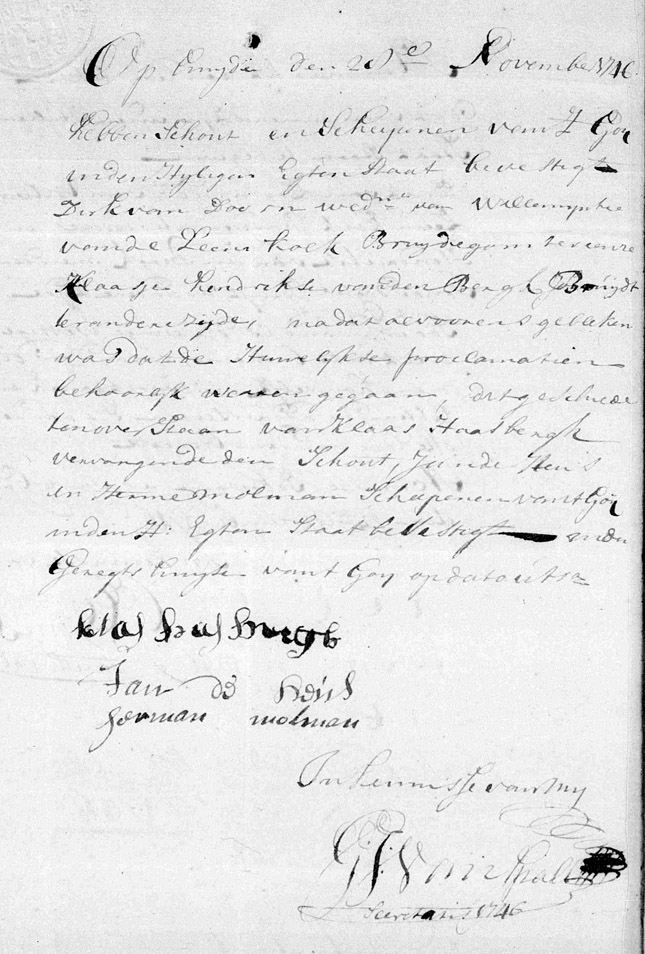 Op huyde den 20e November 1746
hebben Schout en Schepenen van 't Goy
in den Hyligen Egten Staat bevestigt
Dirk van Doorn wednr van Willemyntie
van de Leem kock Bruydegom ter eenre
Klaasje hendrikse van den Bergh Bruydt
ter andere zijde, na dat al voorens gebleken
was dat de Huwelijkse proclamatien
behoorlijk waaren gegaan, dit geschiede
ten overstaan van Klaas Haasbergh
vervangende den Schout, Jan de Heus
en Herme molman Schepenen van 't Goy
in den H: Egten Staat bevestigt in den
Geregts huyse van 't Goy op dato uts
klas has bergh
Jan de heus
herman molman
In kennisse van my
G: J: Van
Secretaris 1746